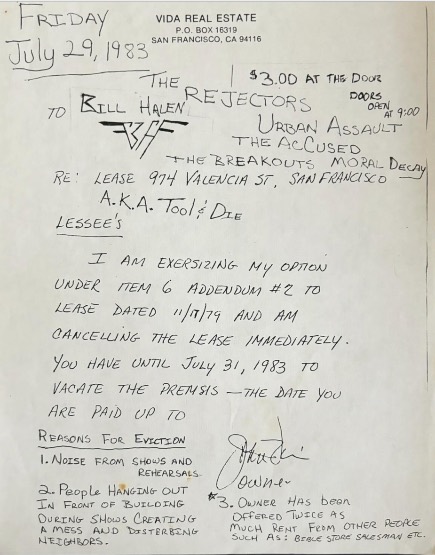 FRIDAY
July 29, 1983
VIDA REAL ESTATE
P.O. BOX 16319
SAN FRANCISCO, CA 94116
$3.00 AT THE DOOR
DOORS
OPEN
AT 9:00
THE
REJECTORS
URBAN ASSAULT
THE ACCUSED
THE BREAKOUTS MORAL DECAY
TO BILL HALEN
RE: LEASE 974 VALENCIA ST, SAN FRANCISCO
A.K.A. TOOL & DIE
LESSEE'S
I AM EXERSIZING MY OPTION
UNDER ITEM 6 ADDENDUM #2 TO
LEASE DATED 11/17/79 AND AM
CANCELLING THE LEASE IMMEDIATELY.
YOU HAVE UNTIL JULY 31, 1983 TO
VACATE THE PREMSIS — THE DATE YOU
ARE PAID UP TO
REASONS FOR EVICTION
1. NOISE FROM SHOWS AND
REHEARSALS.
2. PEOPLE HANGING OUT
IN FRONT OF BUILDING
DURING SHOWS CREATING
A MESS AND DISTERBING
NEIGHBORS.
OWNER
*3. OWNER HAS BEEN
OFFERED TWICE AS
MUCH RENT FROM OTHER PEOPLE
SUCH AS: BIBLE STORE SALESMAN ETC.